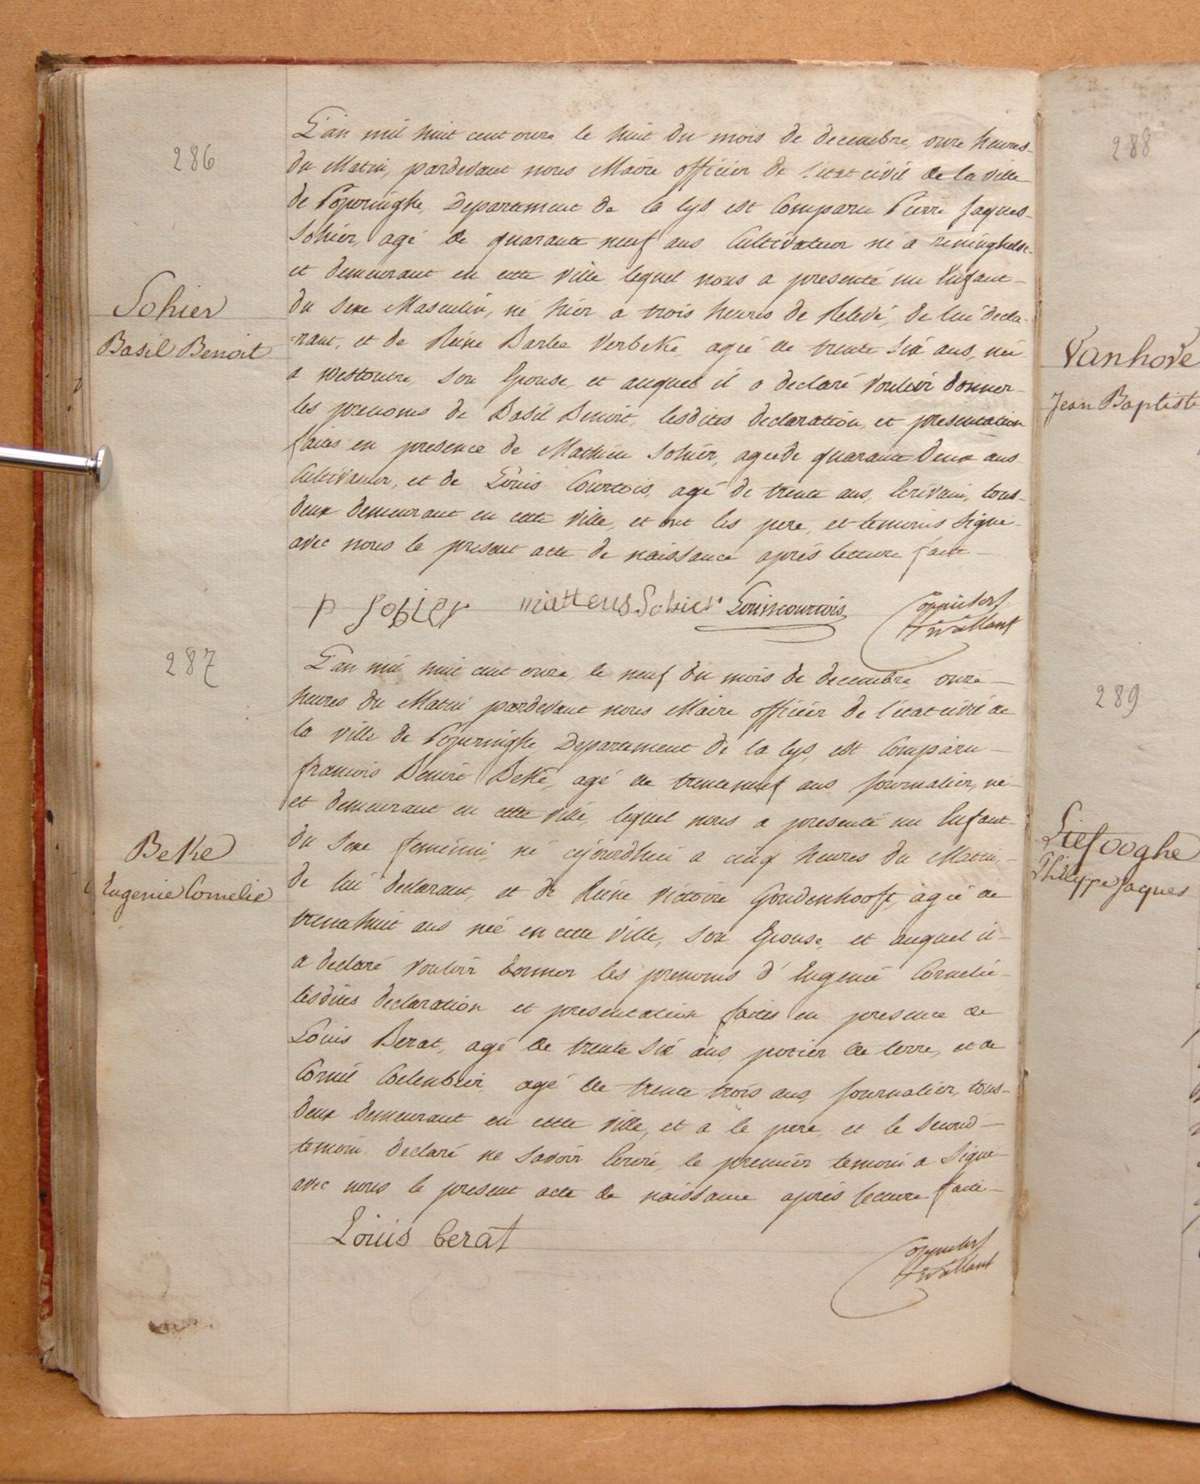 286
Sohier
Basil Benoit
L'an mil huit cent onze le huit du mois de decembre, onze heures
du Matin, pardevant nous Maire officier de l'etat civil de la ville
de Poperinghe, Departement de la Lys est Comparu Pierre Jaques
Sohier, agé de quarante neuf ans Cultivateur né a reninghelst
et demeurant en cette ville lequel nous a presenté un Enfant
du sexe Masculin, né hier a trois heures de Relevé, de lui decla-
rant, et de Reine Barbe Verbeke, agée de trente six ans, née
a westoutre, son Epouse, et auquel il a declaré vouloir donner
les prenoms de Basil Benoit, lesdites declaration et presentation
faites en presence de Mathieu Sohier, agé de quarante deux ans
Cultivateur, et de Louis Courtois, agé de trente ans, Ecrivain, tous
deux demeurant en cette ville, et ont les pere, et temoins signé
avec nous le present acte de naissance après lecture faite
p Sohier matteus Sohier Louis courtois
287
Beke
Eugenie Cornelie
L'an mil huit cent onze, le neuf du mois de decembre onze
heures du Matin pardevant nous Maire officier de l'etat civil de
la ville de Poperinghe Departement de la Lys, est Comparu
francois Beke, agé de trenteneuf ans Journalier, né
et demeurant en cette ville, lequel nous a presenté un Enfant
du Sexe feminin, né cejourdhui a cinq heures du Matin,
de lui declarant et de Reine Victoire Goudenhooft, agée de
trentehuit ans née en cette ville, son Epouse, et auquel il
a declaré vouloir donner les prenoms d'Eugenie Cornelie
lesdites declaration et presentation faites en presence de
Louis Berat, agé de trente six ans, potier de terre, et de
Cornil Coelenbier, agé de trente trois ans Journalier, tous
deux demeurant en cette ville, et a le pere, et le second
temoin declaré ne savoir Ecrire, le premier temoin a signé
avec nous le present acte de naissance après lecture faite
Louis berat
288
Vanhove
Jean Baptist
289
Liefooghe
Philippe Jaques